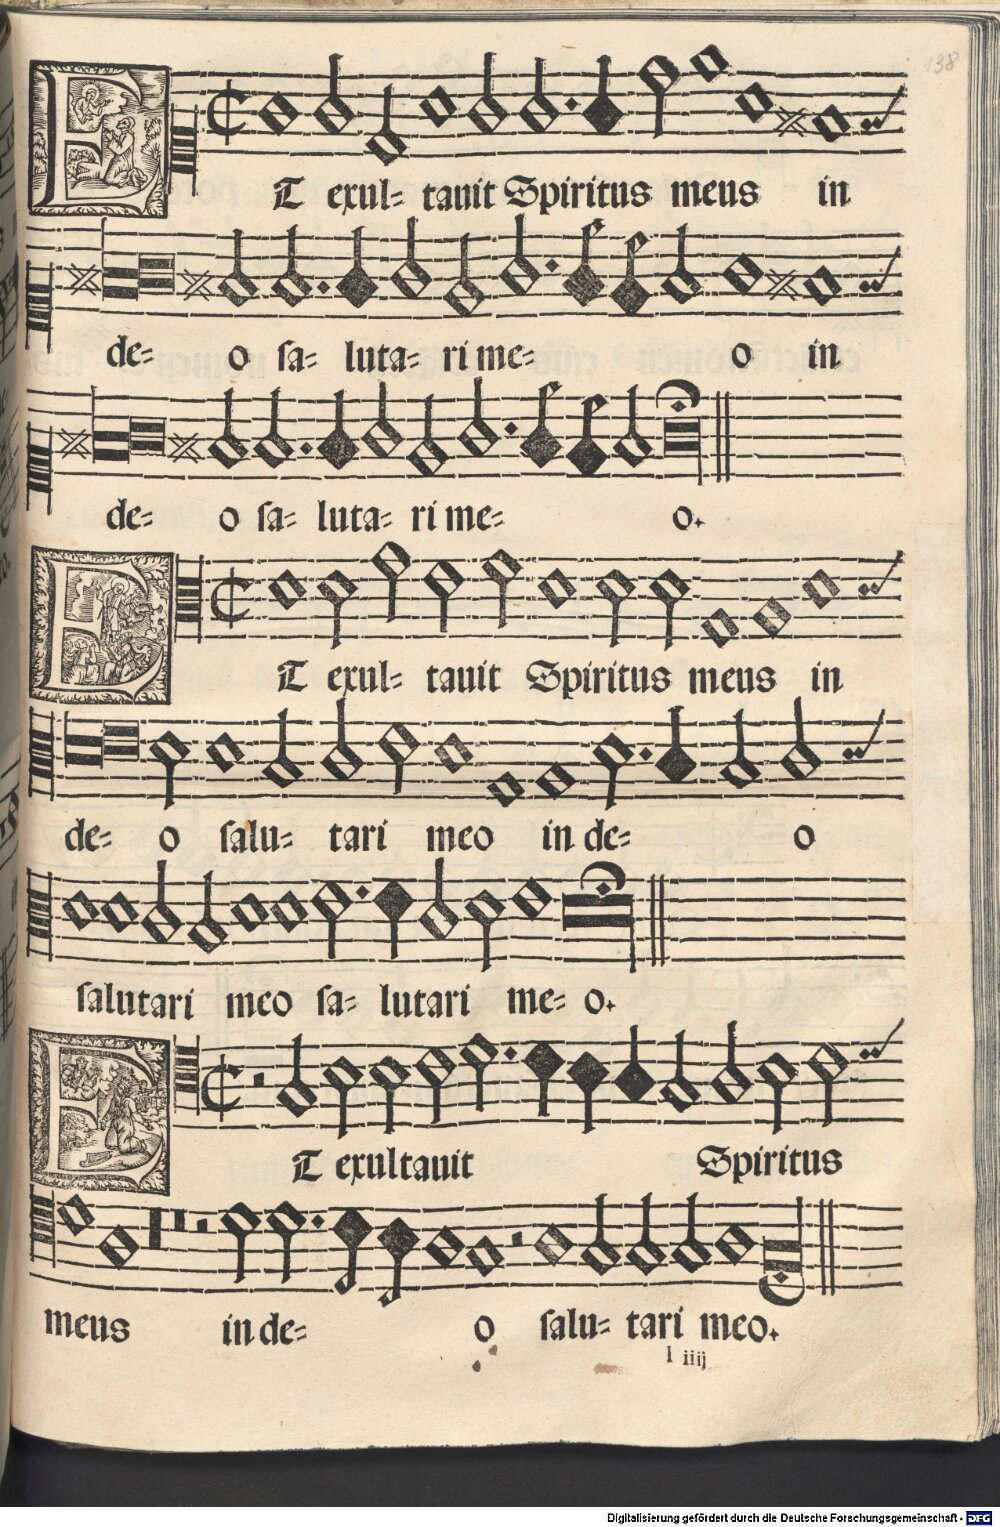 138
ET exul- tauit Spiritus meus in
de- o sa- luta- ri me- o in
de- o sa- luta- ri me- o.
ET exul- tauit Spiritus meus in
de- o salu- tari meo in de- o
salutari meo sa- lutari me- o.
ET exultauit Spiritus
meus in de- o salu- tari meo.
l iiij
Digitalisierung gefördert durch die Deutsche Forschungsgemeinschaft - DFG